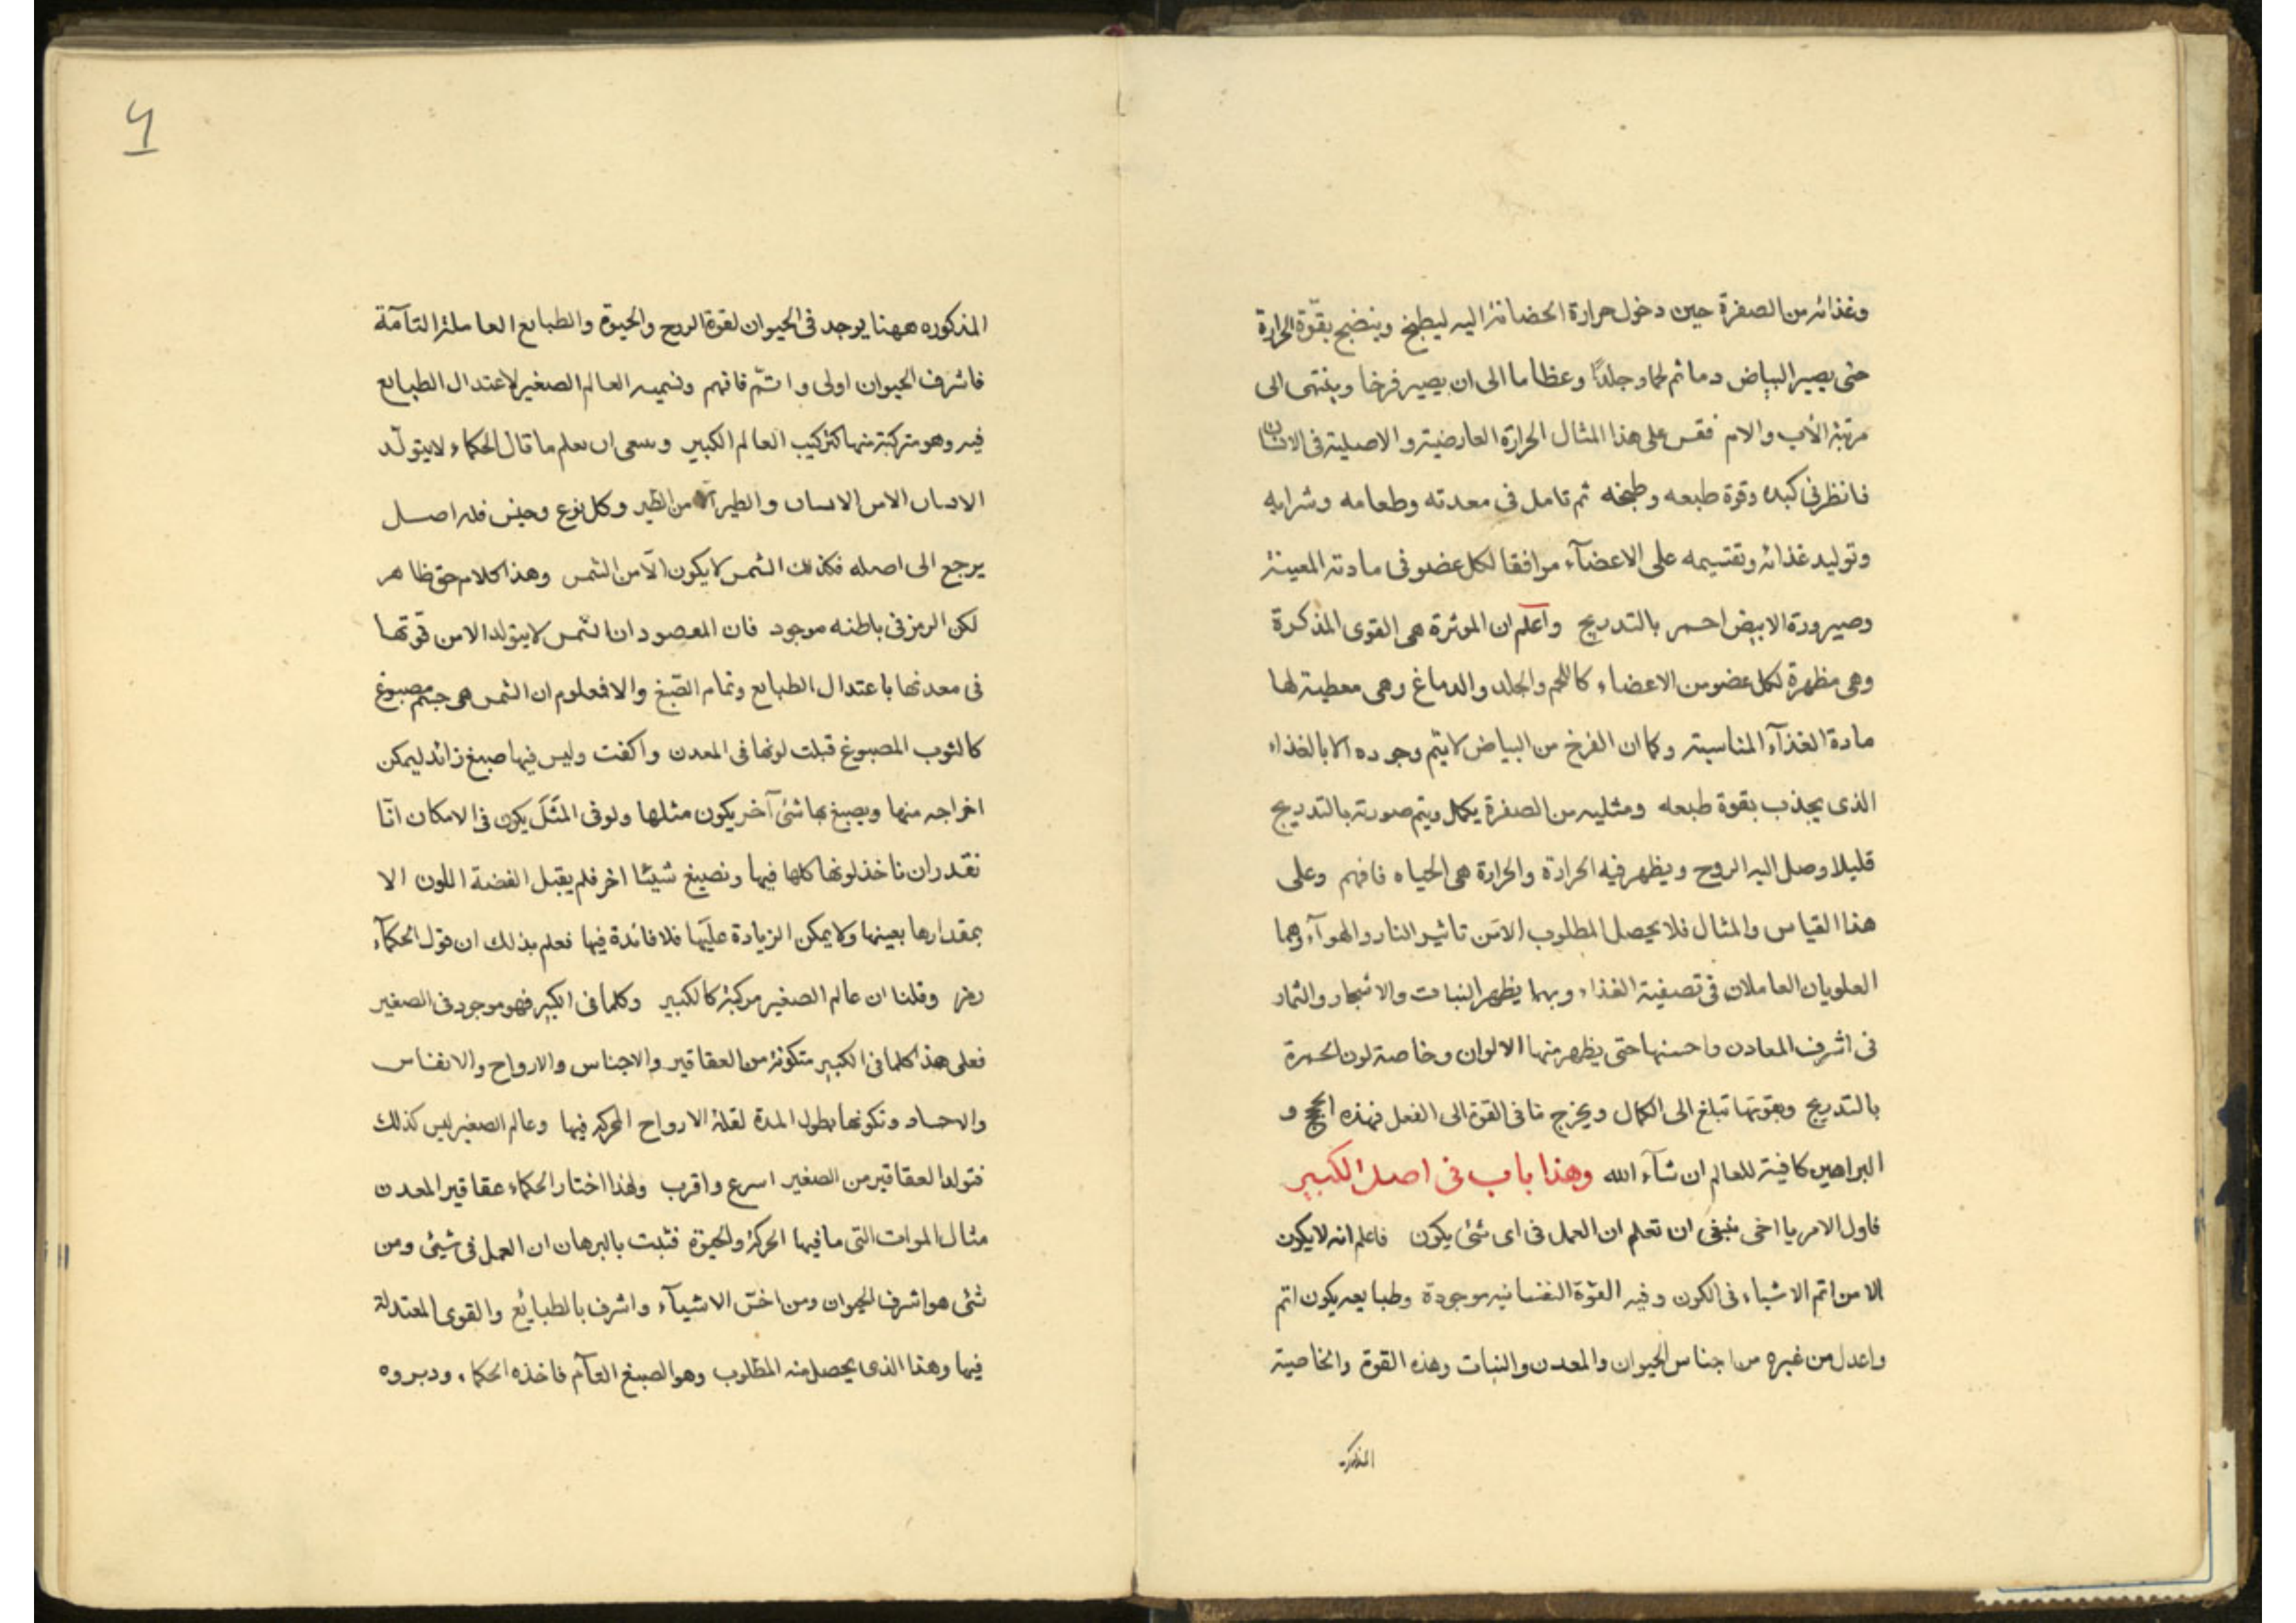 وغذائه من الصفرة حين دخول حرارة الحضانة اليه ليطبخ وينضج بقوّة الحرارة
حتى يصير البياض دما ثم لحما وجلداً وعظاما الى ان يصير فرخا وينتهى الى
مرتبة الأب والام فقس على هذا المثال الحرارة العارضية والاصلية فى الانسان
فانظر فى كبده وقوة طبعه وطبخه ثم تامل فى معدته وطعامه وشرابه
وتوليد غذائه وتقسيمه على الاعضآء موافقا لكل عضو فى مادته المعينة
وصيرورة الابيض احمر بالتدريج واعلم ان الموثرة هى القوى المذكرة
وهى مظهرة لكل عضو من الاعضاء كاللحم والجلد والدماغ وهى معطية لها
مادة الغذآء المناسبة وكما ان الفرخ من البياض لا يتم وجوده الا بالغذاء
الذى يجذب بقوة طبعه ومثليه من الصفرة يكمل ويتم صورته بالتدريج
قليلا وصل اليه الروح ويظهر فيه الحرارة والحرارة هى الحياه فافهم وعلى
هذا القياس والمثال فلا يحصل المطلوب الا من تاثير النار والهوآء وهما
العلويان العاملان فى تصفية الغذاء وبهما يظهر النبات والاشجار والثمار
فى اشرف المعادن واحسنها حتى يظهر منها الالوان وخاصة لون الحمرة
بالتدريج وبقوتها تبلغ الى الكمال ويخرج ما فى القوة الى الفعل فهذه الحجج و
البراهين كافية للعالم ان شآء الله وهذا باب فى اصل الكبير
فاول الامر يا اخى ينبغى ان تعلم ان العمل فى اى شئ يكون فاعلم انه لا يكون
الا من اتم الاشياء فى الكون وفيه القوّة النفسانيه موجودة وطبايعه يكون اتم
واعدل من غيره من اجناس الحيوان والمعدن والنبات وهذه القوة والخاصية
المذكوره
المذكوره ههنا يوجد فى الحيوان لقوة الروح والحيوة والطبايع العاملة التآمة
فاشرف الحيوان اولى واتّم فافهم ونسميه العالم الصغير لاعتدال الطبايع
فيه وهو متركبة منها كتركيب العالم الكبير وينبغى ان يعلم ما قال الحكماء لا يتولّد
الانسان الا من الانسان والطير الا من الطير وكل نوع وجنس فله اصل
يرجع الى اصله فكذلك الشمس لا يكون الّا من الشمس وهذا كلام حق ظاهر
لكن الرمز فى باطنه موجود فان المقصود ان الشمس لا يتولد الا من قوتها
فى معدنها باعتدال الطبايع وتمام الصّبغ والا فمعلوم ان الشمس هى جسم مصبوغ
كالثوب المصبوغ قبلت لونها فى المعدن واكفت وليس فيها صبغ زائد ليمكن
اخراجه منها ويصبغ بها شئ آخر يكون مثلها ولو فى المَثَل يكون فى الامكان انّا
نقدر ان ناخذ لونها كلها فيها ونصبغ شيئا اخر فلم يقبل الفضة اللون الا
بمقدارها بعينها ولا يمكن الزيادة عليها فلا فائدة فيها فعلم بذلك ان قول الحكمآء
رمز وقلنا ان عالم الصغير مركبة كالكبير وكلما فى الكبير فهو موجود فى الصغير
فعلى هذا كلما فى الكبير متكونة من العقاقير والاجناس والارواح والانفاس
والاجساد وتكونها بطول المدة لقلة الارواح المحركه فيها وعالم الصغير ليس كذلك
فتولد العقاقير من الصغير اسرع واقرب ولهذا اختار الحكماء عقاقير المعدن
مثال الموات التى ما فيها الحركة والحيوة فثبت بالبرهان ان العمل فى شيئ ومن
شئ هو اشرف الحيوان ومن اخسّ الاشيآء واشرف بالطبايع والقوى المعتدلة
فيها وهذا الذى يحصل منه المطلوب وهو الصبغ التآم فاخذه الحكماء ودبروه